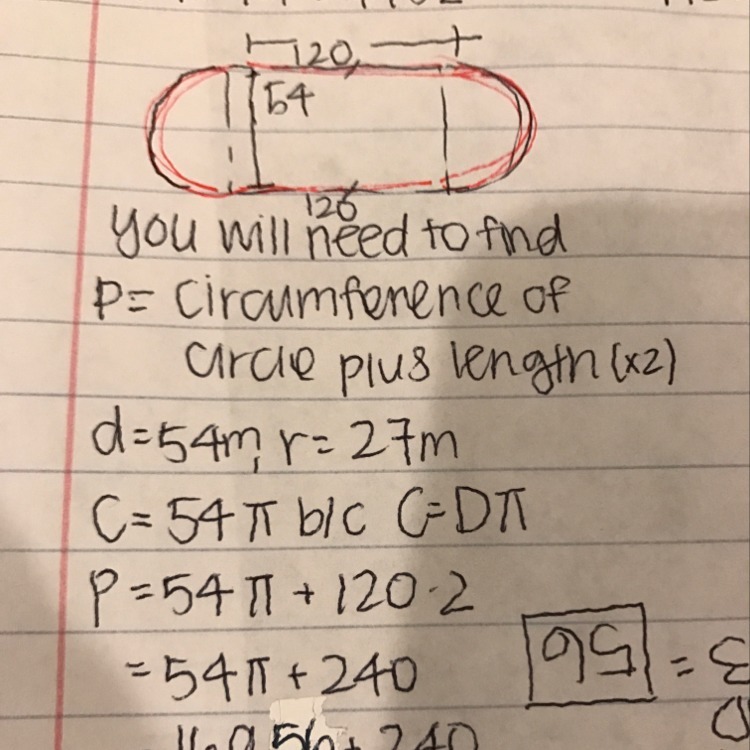 120
54
120
you will need to find
P= circumference of
circle plus length (x2)
d=54m, r=27m
C=54π b/c C=Dπ
P=54π + 120·2
=54π+240
56 =
+ 240